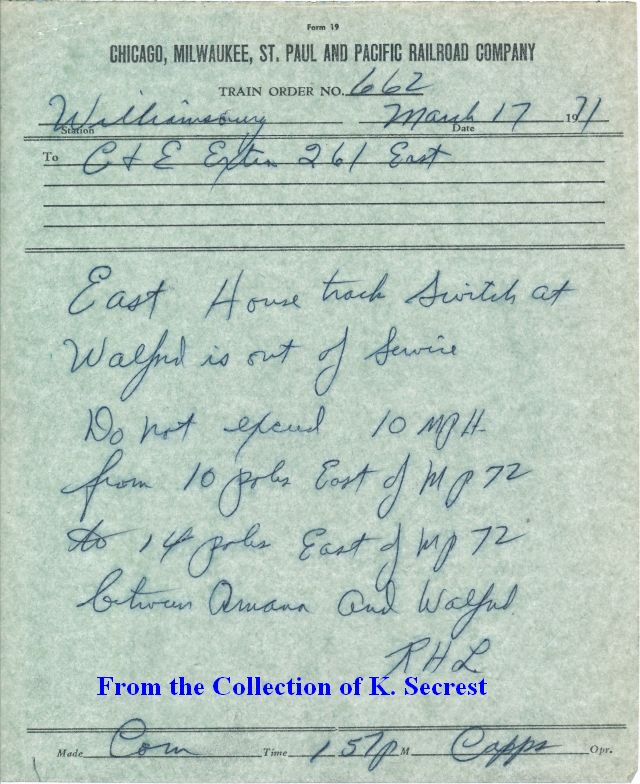 Form 19
CHICAGO, MILWAUKEE, ST. PAUL AND PACIFIC RAILROAD COMPANY
TRAIN ORDER NO. 662
Williamsburg March 17 1971
Station Date
To C & E Extra 261 East
East House track switch at
Walford is out of service
Do not exceed 10 MPH
from 10 poles East of MP 72
to 14 poles East of MP 72
between Amana and Walford
RHL
From the Collection of K. Secrest
Made Com Time 1 57 P M Capps Opr.